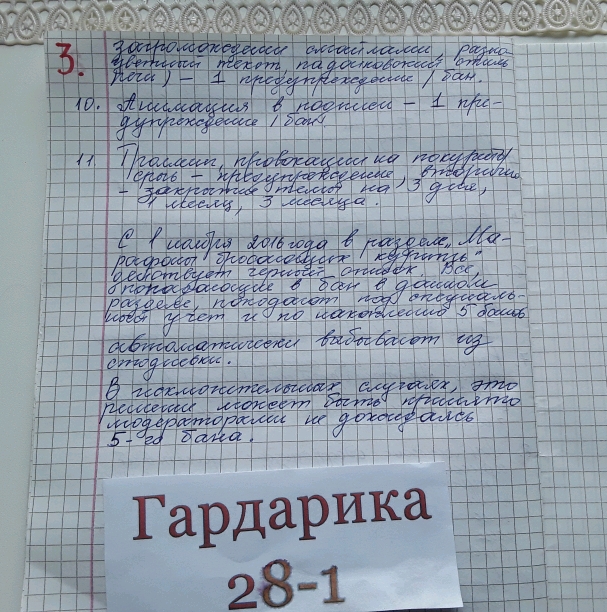 3.
загромождении смайлами, разно-
цветный текст, падонковский стиль
речи) – 1 предупреждение / бан.
10. Анимация в подписи – 1 пре-
дупреждение / бан.
11. Троллинг, провокации на покурить/
срыв – предупреждение, вторично
- закрытие темы на 3 дня,
1 месяц, 3 месяца.
С 1 ноября 2016 года в разделе „Ма-
рафоны бросающих курить"
действует черный список. Все,
попадающие в бан в данном
разделе, попадают под специаль-
ный учет и по накоплению 5 банов
автоматически выбывают из
стодневки.
В исключительных случаях, это
решение может быть принято
модераторами не дожидаясь
5-го бана.
Гардарика
28-1